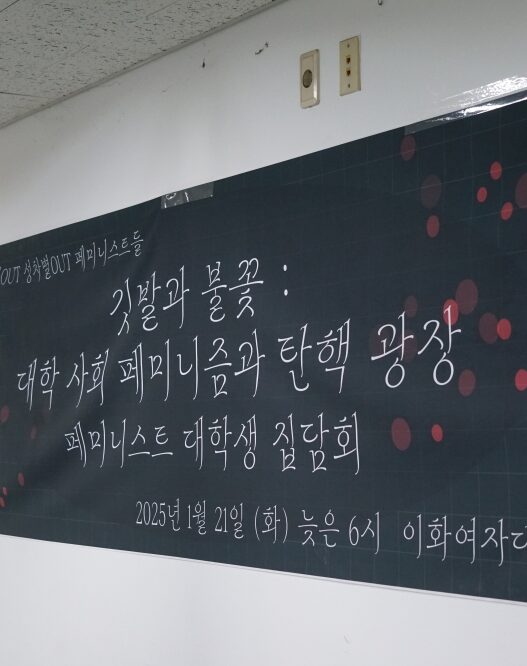 OUT 성차별OUT 페미니스트들
깃발과 불꽃 :
대학 사회 페미니즘과 탄핵 광장
페미니스트 대학생 집담회
2025년 1월 21일 (화) 늦은 6시 이화여자